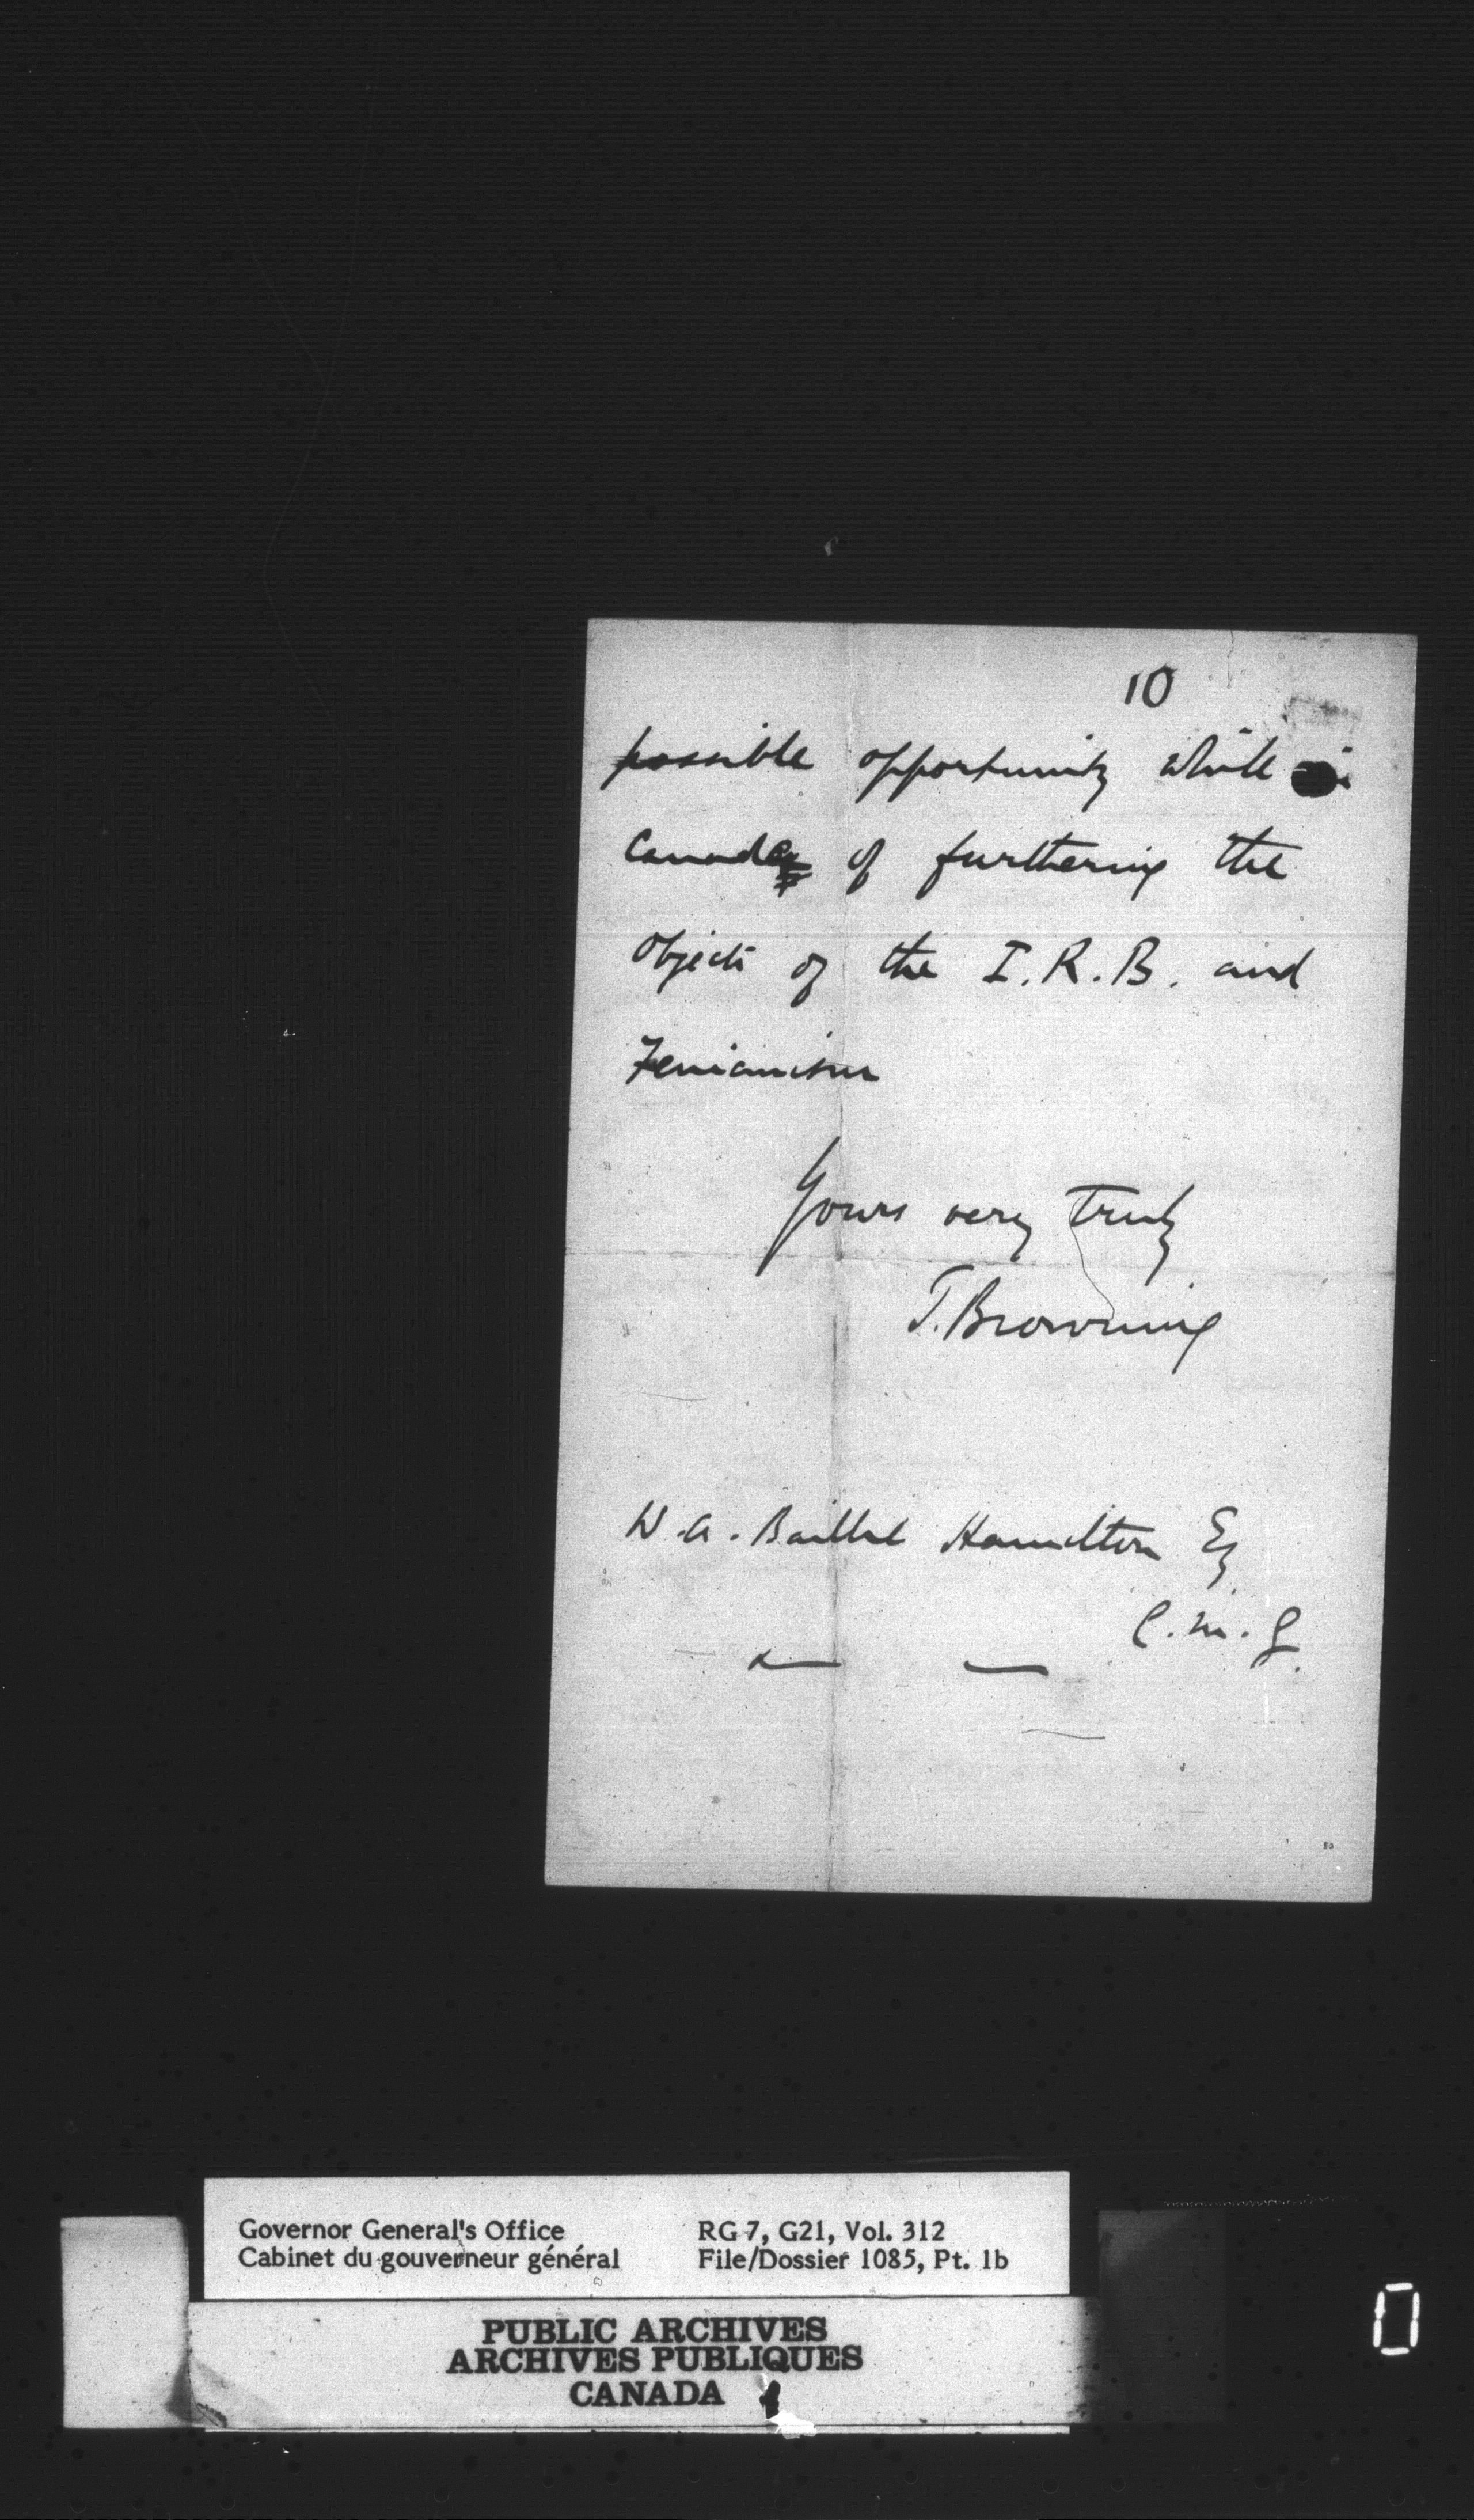 10
possible opportunity while
Canada of furthering the
objects of the I.R.B. and
Fenianism
Yours very truly
J. Browning
W. A. Baillie Hamilton Esq
C.M.G.
Governor General's Office
Cabinet du gouverneur général
RG 7, G21, Vol. 312
File/Dossier 1085, Pt. 1b
PUBLIC ARCHIVES
ARCHIVES PUBLIQUES
CANADA
0